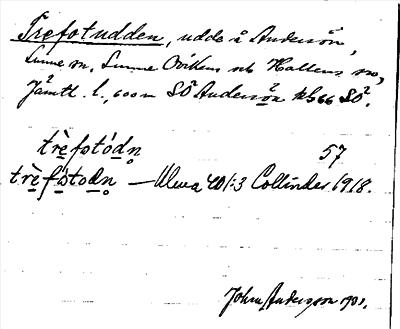 Trefotudden, udde å Andersön,
Sunne sn, Sunne Ovikens och Hallens
Jämtl. l., 600 m SÖ Andersön kb 66 SÖ.
trè̱fstód̠n̥ 57
trè̱fòtod̠n̥ — Ulma 401:3 Collinder 1918.
John Andersson 1901.